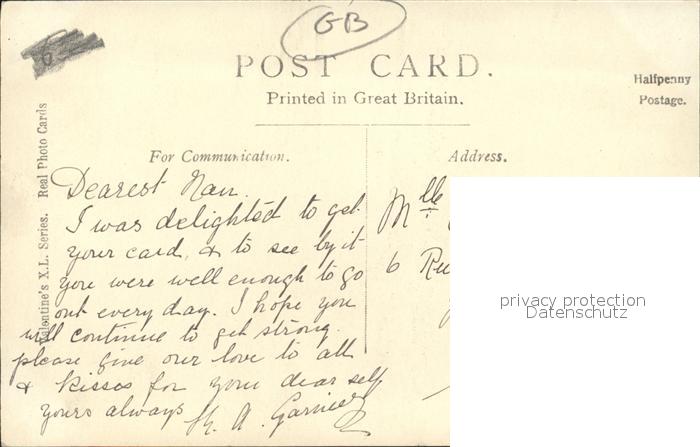 GB
POST CARD.
Printed in Great Britain.
Halfpenny
Postage.
Valentine's X.L. Series. Real Photo Cards
For Communication.
Address.
Dearest Nan.
I was delighted to get
your card, & to see by it
you were well enough to go
out every day. I hope you
will continue to get strong.
please give our love to all
& kisses for your dear self
yours always
A. Garnier
Mlle
6 Rue
privacy protection
Datenschutz